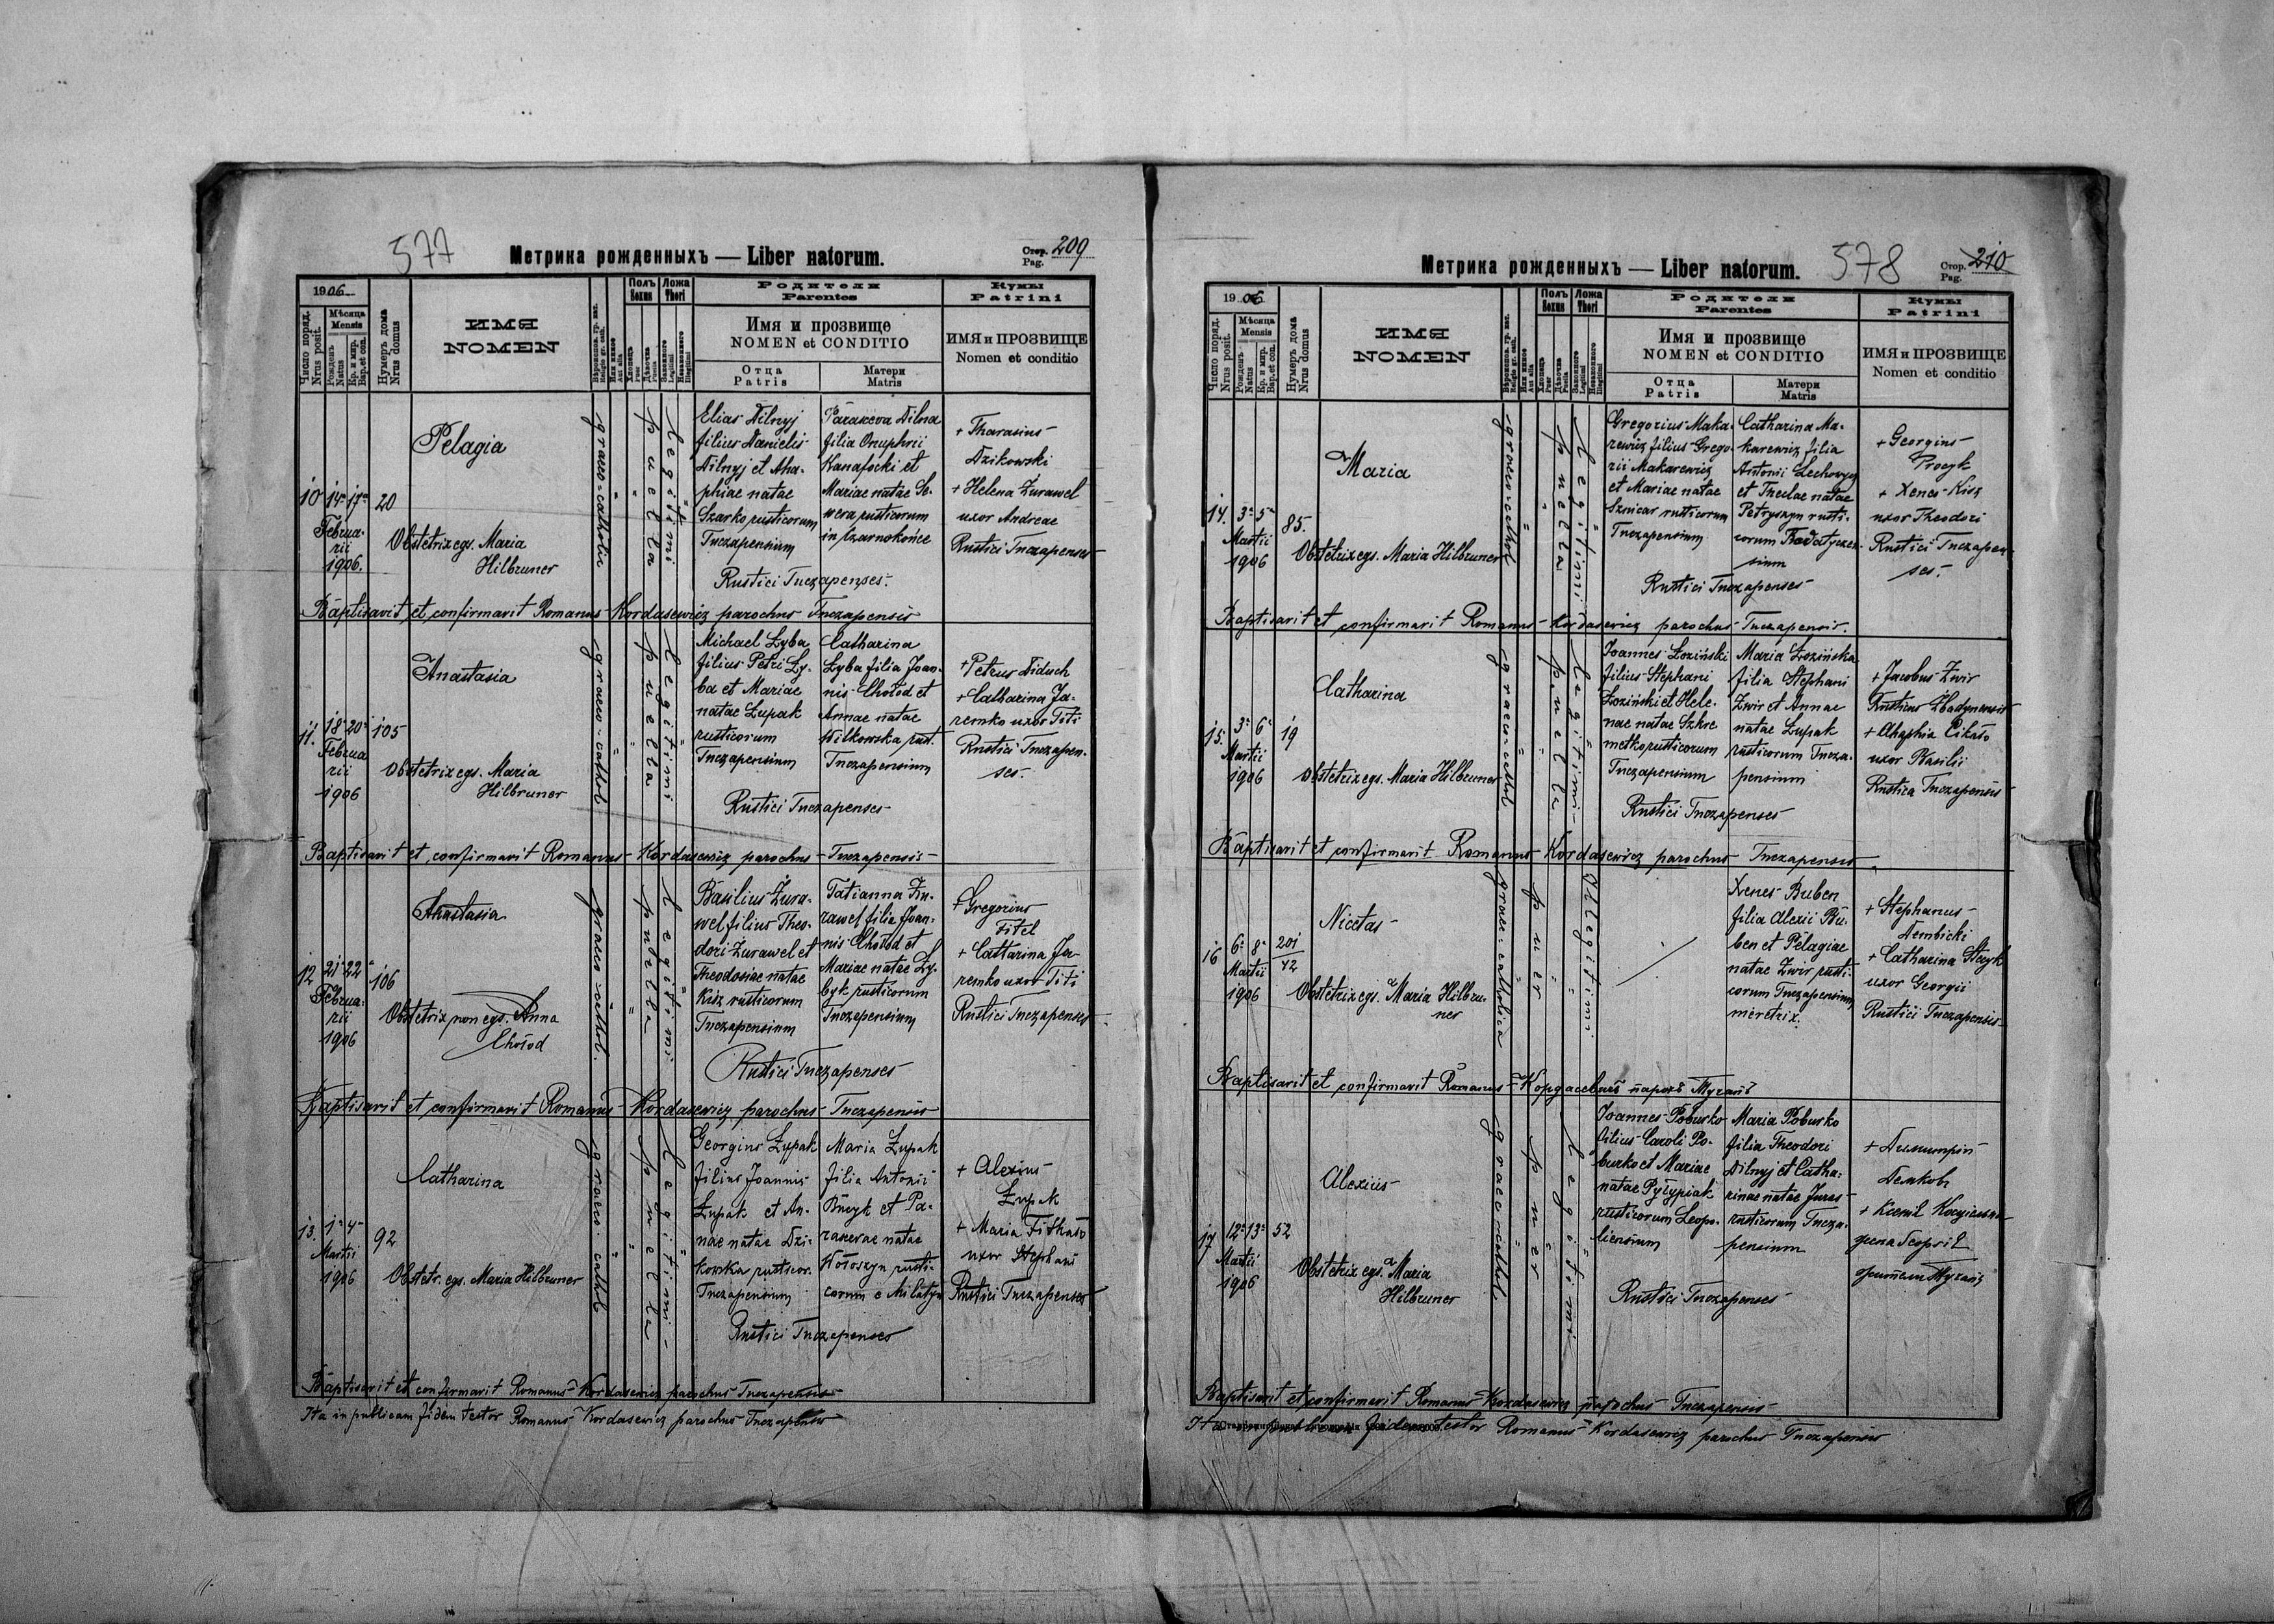 577
Метрика рожденныхъ — Liber natorum.
Стор. 209
Pag.
1906
Число поряд.
Nrus posit.
Мѣсяца
Mensis
Рожденъ
Natus
Кр. и мѵр.
Bap. et con.
Нумеръ дома
Nrus domus
ИМЯ
NOMEN
Полъ
Ложа
Thori
Родители
Parentes
Имя и прозвище
NOMEN et CONDITIO
Отца
Patris
Матери
Matris
Кумы
Patrini
ИМЯ и ПРОЗВИЩЕ
Nomen et conditio
10 14 17 20
Februa-
rii
1906.
Pelagia
Obstetrix egs. Maria
Hilbruner
graeco-catholica
puella
Legitimi
Elias Dilnyj
filius Danielis
Dilnyj et Aha-
phiae natae
Szarko rusticorum
Tuczapensium
Parasceva Dilna
filia Onuphrii
Kanafocki et
Mariae natae Se-
wera rusticorum
in Czarnokońce
Rustici Tuczapenses.
+ Tharasius
Dzikowski
+ Helena Żurawel
uxor Andreae
Rustici Tuczapenses
Baptisavit et confirmavit Romanus Kordasewicz parochus Tuczapensis
11. 18 20 105
Februa
rii
1906
Anastasia
Obstetrix egs. Maria
Hilbruner
graeco-cathol.
puella
Legitimi
Michael Łyba
filius Petri Ły-
ba et Mariae
natae Łupak
rusticorum
Tuczapensium
Catharina
Łyba filia Joan-
nis Chołod et
Annae natae
Wilkowska rust.
Tuczapensium
Rustici Tuczapenses
+ Petrus Diduch
+ Catharina Ja-
remko uxor Titi
Rustici Tuczapen-
ses.
Baptisavit et confirmavit Romanus Kordasewicz parochus Tuczapensis
12 21 22 106
Februa-
rii
1906
Anastasia
Obstetrix non egs. Anna
Chołod
graeco-cathol.
puella
Legitimi
Basilius Żura-
wel filius Theo-
dori Żurawel et
Theodosiae natae
Kisz rusticorum
Tuczapensium
Tatianna Żu-
rawel filia Joan-
nis Chołod et
Mariae natae Ły-
byk rusticorum
Tuczapensium
Rustici Tuczapenses
+ Gregorius
Fitel
+ Catharina Ja
remko uxor Titi
Rustici Tuczapenses
Baptisavit et confirmavit Romanus Kordasewicz parochus Tuczapensis
13. 1 4 92
Martii
1906
Catharina
Obstetr. egs. Maria Hilbruner
graeco-cathol
puella
Legitimi
Georgius Łupak
filius Joannis
Łupak et An-
nae natae Dzi-
kowska rusticor.
Tuczapensium
Maria Łupak
filia Antonii
Bucyk et Pa-
rascevae natae
Kołoszyn rusti-
corum e Milatyn
Rustici Tuczapenses
+ Alexius
Łupak
+ Maria
uxor Stephani
Rustici Tuczapenses
Baptisavit et confirmavit Romanus Kordasewicz parochus Tuczapensis
Ita in publicam fidem testor Romanus Kordasewicz parochus Tuczapensis
Метрика рожденныхъ — Liber natorum.
578
Стор. 210
Pag.
1906
Число поряд.
Nrus posit.
Мѣсяца
Mensis
Рожденъ
Natus
Кр. и мѵр.
Bap. et con.
Нумеръ дома
Nrus domus
ИМЯ
NOMEN
Полъ
Ложа
Thori
Родители
Parentes
Имя и прозвище
NOMEN et CONDITIO
Отца
Patris
Матери
Matris
Кумы
Patrini
ИМЯ и ПРОЗВИЩЕ
Nomen et conditio
14. 3 5 85.
Martii
1906
Maria
Obstetrix egs. Maria Hilbruner
graeco-cathol
puella
Legitimi
Gregorius Maka-
rewicz filius Grego-
rii Makarewicz
et Mariae natae
Sznicar rusticorum
Tuczapensium
Catharina Ma-
karewicz filia
Antonii Lechowycz
et Theclae natae
Petryszyn rusti-
corum
sium
Rustici Tuczapenses
+ Georgius
Procyk
+ Xenes Kisz
uxor Theodori
Rustici Tuczapen-
ses.
Baptisavit et confirmavit Romanus Kordasewicz parochus Tuczapensis.
15. 3 6 19
Martii
1906
Catharina
Obstetrix egs. Maria Hilbruner
graeco-cathol
puella
Legitimi
Joannes Łoziński
filius Stephani
Łoziński et Hele-
nae natae Szkre
metko rusticorum
Tuczapensium
Maria Łozińska
filia Stephani
Zwir et Annae
natae Łupak
rusticorum Tucza-
pensium
Rustici Tuczapenses
+ Jacobus Zwir
Rusticus
+ Ahaphia Cikało
uxor Basilii
Rustica Tuczapensis
Baptisavit et confirmavit Romanus Kordasewicz parochus Tuczapensis
16 6 8 201/42
Martii
1906
Nicetas
Obstetrix egs. Maria Hilbru-
ner
graeco-catholica
puer
Illegitimi
Xenes Buben
filia Alexii Bu-
ben et Pelagiae
natae Zwir rusti-
corum Tuczapensium
meretrix.
+ Stephanus
Dembicki
+ Catharina Stecyk
uxor Georgii
Rustici Tuczapenses
Baptisavit et confirmavit Romanus Кордасевичъ парохъ
17 12 13 52
Martii
1906
Alexius
Obstetrix egs. Maria
Hilbruner
graeco-cathol.
puer
Legitimi
Joannes Poburko
filius Caroli Po-
burko et Mariae
natae Pyłypiak
rusticorum Leopo-
liensium
Maria Poburko
filia Theodori
Dilnyj et Catha-
rinae natae Juras
rusticorum Tucza-
pensium
Rustici Tuczapenses
+ Димитрій
Демковъ
жена Георгія
Baptisavit et confirmavit Romanus Kordasewicz parochus Tuczapensis
Ita in publicam fidem testor Romanus Kordasewicz parochus Tuczapensis